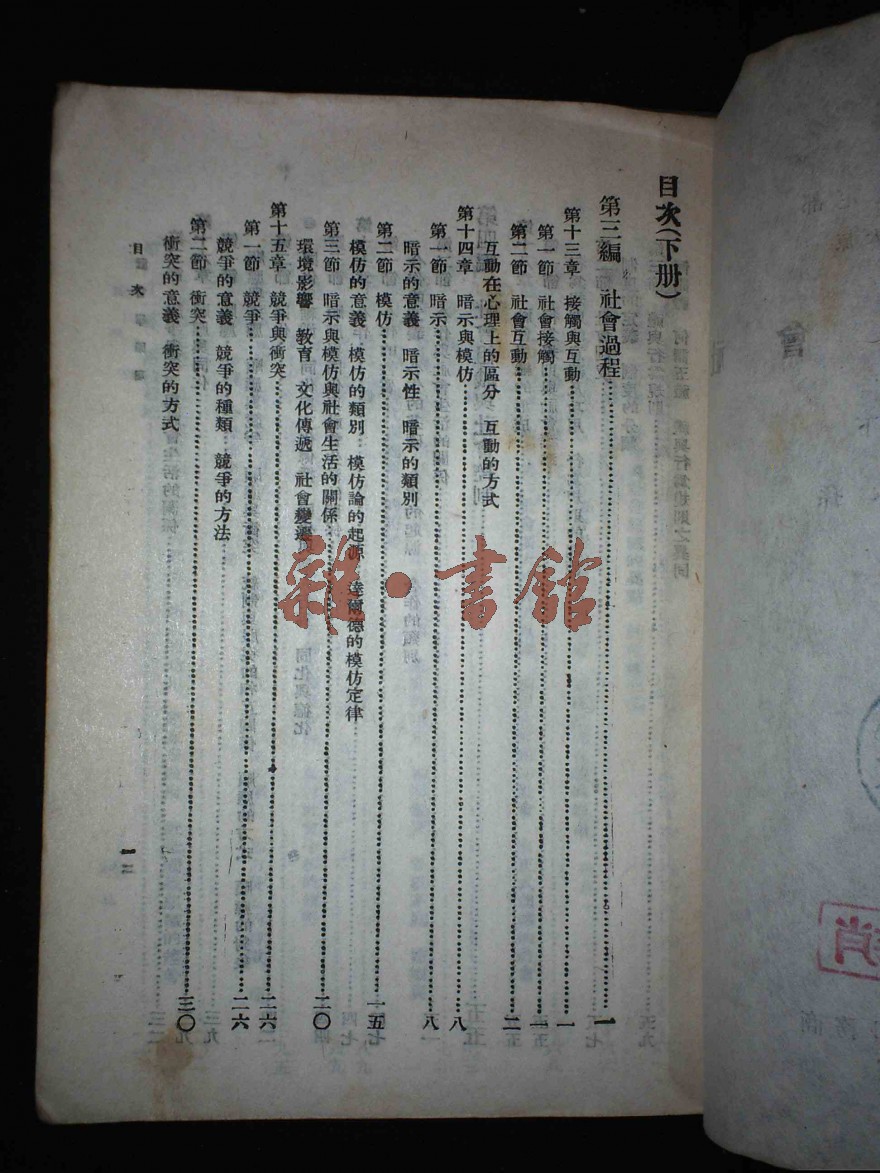 目次(下册)
第三編　社會過程……一
第十三章　接觸與互動……一
第一節　社會接觸……一
第二節　社會互動……二
互動在心理上的區分　互動的方式
第十四章　暗示與模仿……八
第一節　暗示……八
暗示的意義　暗示性　暗示的類別
第二節　模仿……一五
模仿的意義　模仿的類別　模仿論的起源　達爾德的模仿定律
第三節　暗示與模仿與社會生活的關係……二〇
環境影響　教育　文化傳遞　社會變遷
第十五章　競爭與衝突……二六
第一節　競爭……二六
競爭的意義　競爭的種類　競爭的方法
第二節　衝突……三〇
衝突的意義　衝突的方式
目次
一
雜·書館